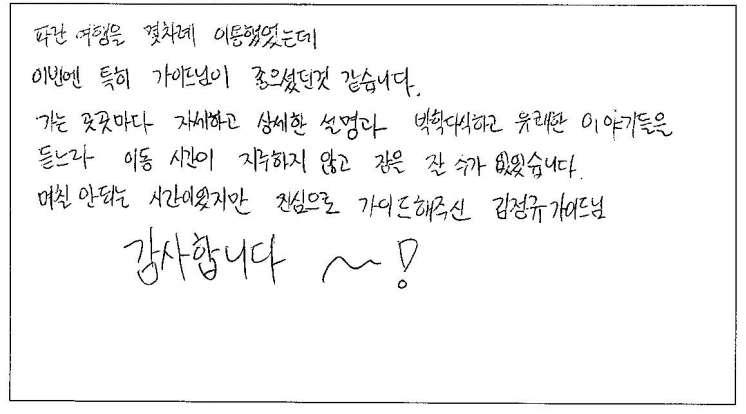 파간 여행을 몇차례 이용했었는데
이번엔 특히 가이드님이 좋으셨던것 같습니다.
가는 곳곳마다 자세하고 상세한 설명과 박학다식하고 유쾌한 이야기들을
듣느라 이동 시간이 지루하지 않고 잠을 잘 수가 없었습니다.
며칠 안되는 시간이었지만 진심으로 가이드해주신 김정규가이드님
감사합니다 ~!